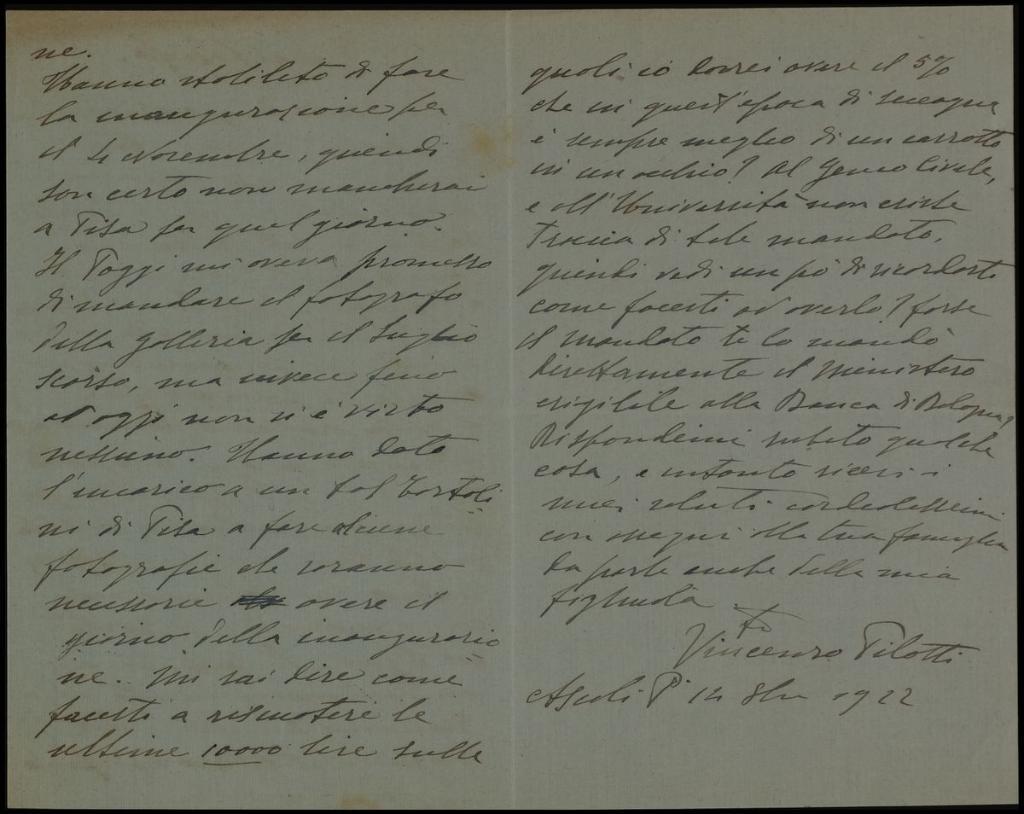 ne.
Hanno stabilito di fare
la inaugurazione per
il 4 Novembre, quindi
son certo non mancherai
a Pisa per quel giorno.
Il Poggi mi aveva promesso
di mandare il fotografo
della Galleria per il Luglio
scorso, ma invece fino
ad oggi non si è visto
nessuno. Hanno dato
l'incarico a un tal Bortoli
ni di Pisa a fare alcune
fotografie che saranno
necessarie avere il
giorno della inaugurazio
ne. Mi sai dire come
facesti a riscuotere le
ultime 10000 lire sulle
quali io dovrei avere il 5%
che in quest'epoca di
è sempre meglio di un
in un occhio? Al Genio Civile,
e all'Università non esiste
traccia di tale mandato,
quindi vedi un pò di ricordarti
come facesti ad averlo? forse
il mandato te lo mandò
direttamente il Ministero
esigibile alla Banca di Bologna?
Rispondimi subito qualche
cosa, e intanto ricevi i
miei saluti cordialissimi
con ossequi alla tua famiglia
da parte anche della mia
figliuola
Vincenzo Pilotti
Ascoli P. 14 8bre 1922